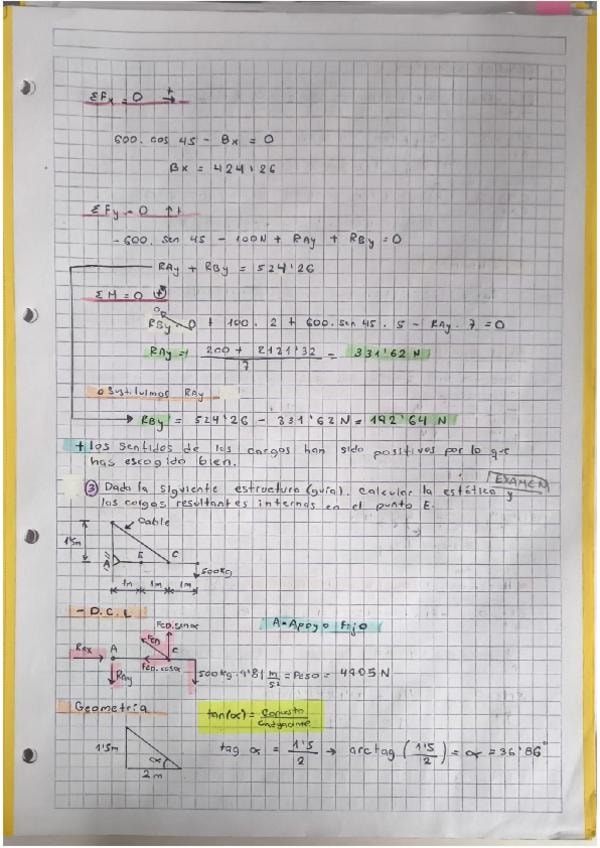 ΣFx = 0 →+
600. cos 45 - Bx = 0
Bx = 424'26
ΣFy = 0 ↑+
- 600. sen 45 - 100N + RAy + RBy = 0
RAy + RBy = 524'26
ΣM = 0 +
RBy . 0 + 100 . 2 + 600. sen 45 . 5 - RAy . 7 = 0
RAy = 200 + 2121'32 / 7 = 331'62 N
o Sustituimos RAy
RBy = 524'26 - 331'62 N = 192'64 N
+ los sentidos de las cargas han sido positivos por lo que
has escogido bien.
EXAMEN
③ Dada la siguiente estructura (guía). calcular la estática y
las cargas resultantes internas en el punto E.
Cable
1'5m
A E C
500kg
1m 1m 1m
- D.C.L
FCD.sinα
A = Apoyo Fijo
RAx A FCD C
RAy FCD.cosα 500kg . 9'81 m/s² = Peso = 4905 N
Geometría
tan(α) = opuesto / contiguo
1'5m α 2m
tag α = 1'5 / 2 → arctag (1'5 / 2) = α = 36'86°